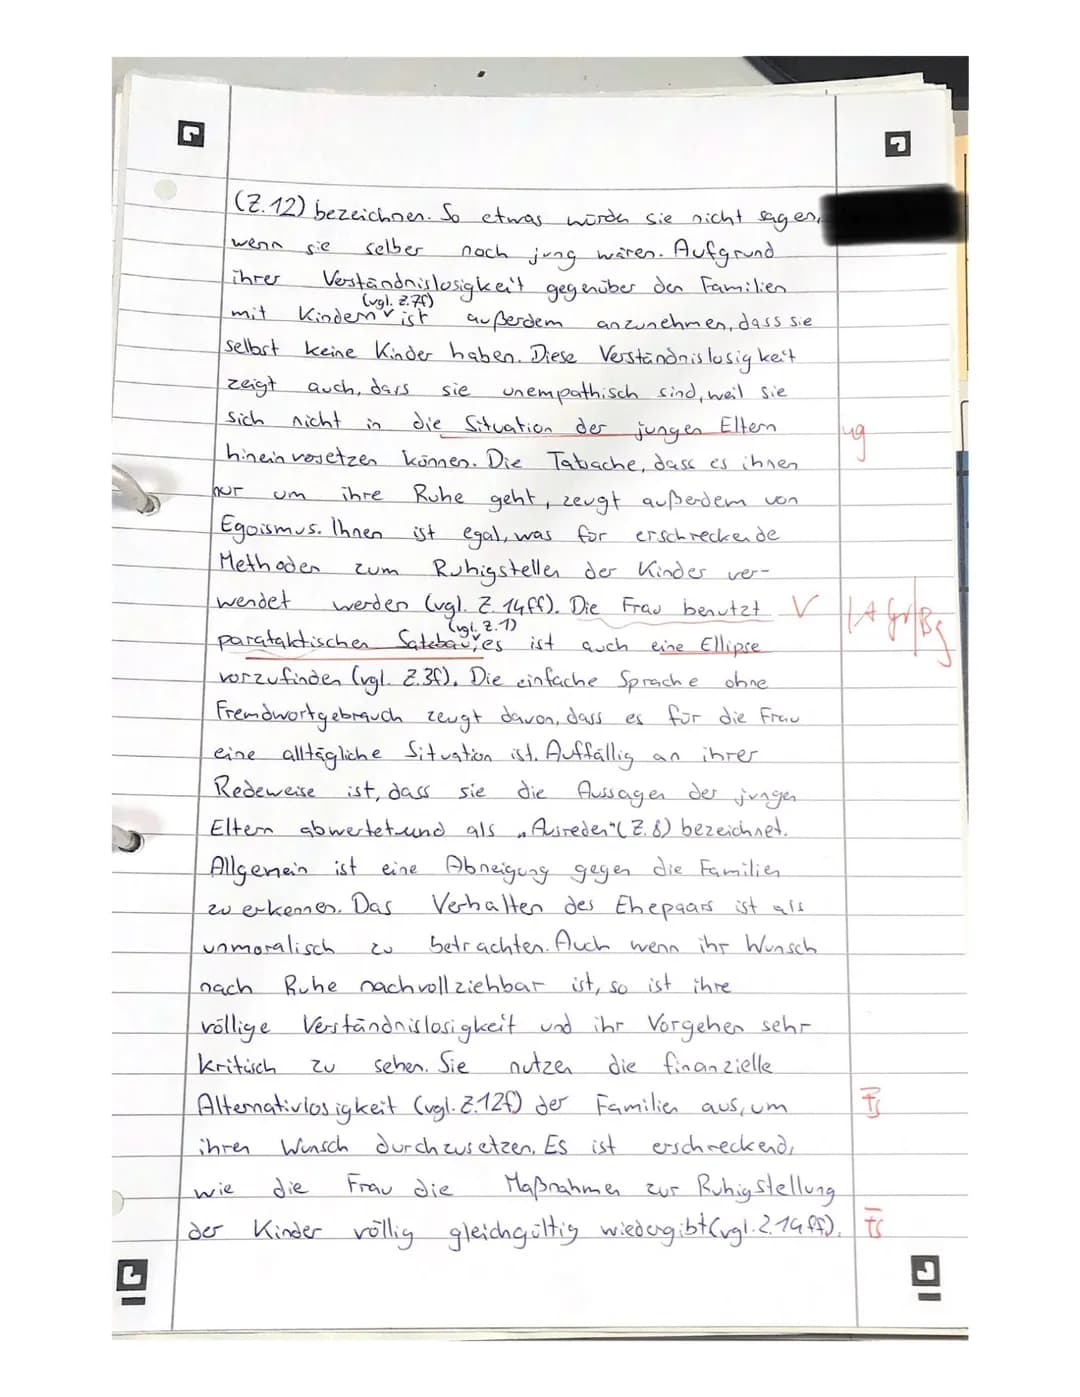 (Z.12) bezeichnen. So etwas würden sie nicht sagen,
wenn sie selber noch jung wären. Aufgrund
ihrer Verständnislosigkeit gegenüber den Familien
(vgl. Z.7f)
mit Kindern ist außerdem anzunehmen, dass sie
selbst keine Kinder haben. Diese Verständnislosigkeit
zeigt auch, dass sie unempathisch sind, weil sie
sich nicht in die Situation der jungen Eltern
ug
hineinversetzen können. Die Tatsache, dass es ihnen
nur um ihre Ruhe geht, zeugt außerdem von
Egoismus. Ihnen ist egal, was für erschreckende
Methoden zum Ruhigstellen der Kinder ver-
wendet werden (vgl. Z. 14ff). Die Frau benutzt
V | A Gr/Bg
(vgl. Z.1)
parataktischen Satzbau, es ist auch eine Ellipse
vorzufinden (vgl. Z.3f). Die einfache Sprache ohne
Fremdwortgebrauch zeugt davon, dass es für die Frau
eine alltägliche Situation ist. Auffällig an ihrer
Redeweise ist, dass sie die Aussagen der jungen
Eltern abwertet und als „Ausreden" (Z. 8) bezeichnet.
Allgemein ist eine Abneigung gegen die Familien
zu erkennen. Das Verhalten des Ehepaars ist als
unmoralisch zu betrachten. Auch wenn ihr Wunsch
nach Ruhe nachvollziehbar ist, so ist ihre
völlige Verständnislosigkeit und ihr Vorgehen sehr
kritisch zu sehen. Sie nutzen die finanzielle
Alternativlosigkeit (vgl. Z.12f) der Familien aus, um
Fs
ihren Wunsch durchzusetzen. Es ist erschreckend,
wie die Frau die Maßnahmen zur Ruhigstellung
der Kinder völlig gleichgültig wiedergibt (vgl. Z. 14ff).
Fs